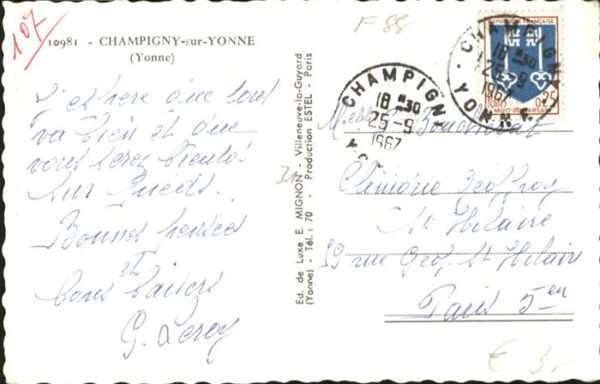 107
F 88
10981 - CHAMPIGNY-sur-YONNE
(Yonne)
J'espère que tout
va bien et que
vous serez bientôt
sur pieds.
Bonnes pensées
et
bons baisers
G. Leroy
Ed. de Luxe E. MIGNON - Villeneuve-la-Guyard
(Yonne) - Tél.: 70 - Production ESTEL - Paris
CHAMPIGNY
18 H 30
25-9
1967
YONNE
CHAMPIGN
18 H 30
25-9
1967
0,25
Clinique Geoffroy
St Hilaire
59 rue Geof. St Hilaire
Paris 5 en
€ 3,-